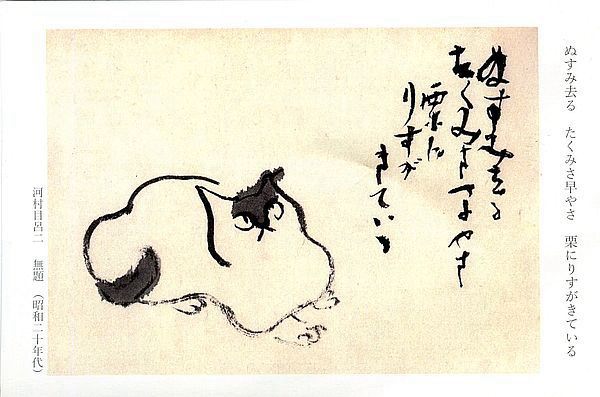 ぬすみ去る　たくみさ早やさ　栗にりすがきている
ぬすみ去る
たくみさ早やさ
栗に
りすが
きている
河村目呂二　無題　（昭和二十年代）